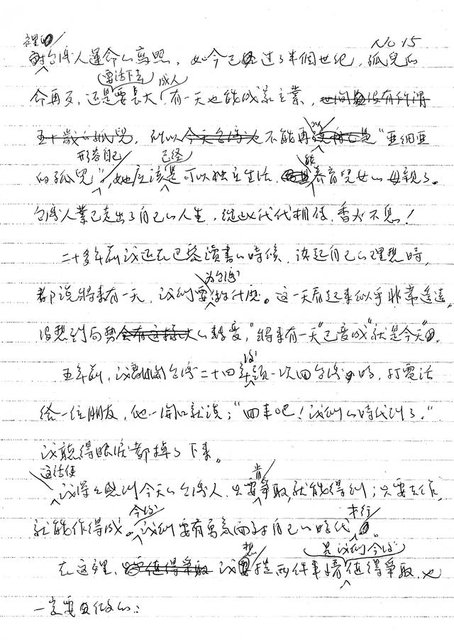 No 15
台灣人運命の寫照,如今已經過了半個世紀,孤兒的
命再歹,還是要長大(要活下去)成人,有一天也能成家立業,
所以不能再以"亞細亞
的孤兒"形容自己,她應該已經是可以獨立生活,能養育兒女的母親了。
台灣人業已走出了自己的人生,從此代代相傳,香火不息!
二十多年前我還在巴黎讀書的時候,談起自己的理想時,
都說將來有一天,我們要為台灣做什麼。這一天看起來似乎非常遙遠,
沒想到局勢的轉變,"將來有一天"已變成"就是今天"。
五年前,我離開台灣二十四年後頭一次回台灣時,打電話
給一位朋友,他一開口就說:"回來吧!我們的時代到了。"
我聽得眼淚都掉了下來。
這話使我深深感到今天的台灣人,只要肯爭取,就能得到;只要去作,
就能作得成。今後我們要有勇氣面對自己的時代
在這裡,我想提兩件事情是我們今後值得爭取,也
一定要做的: